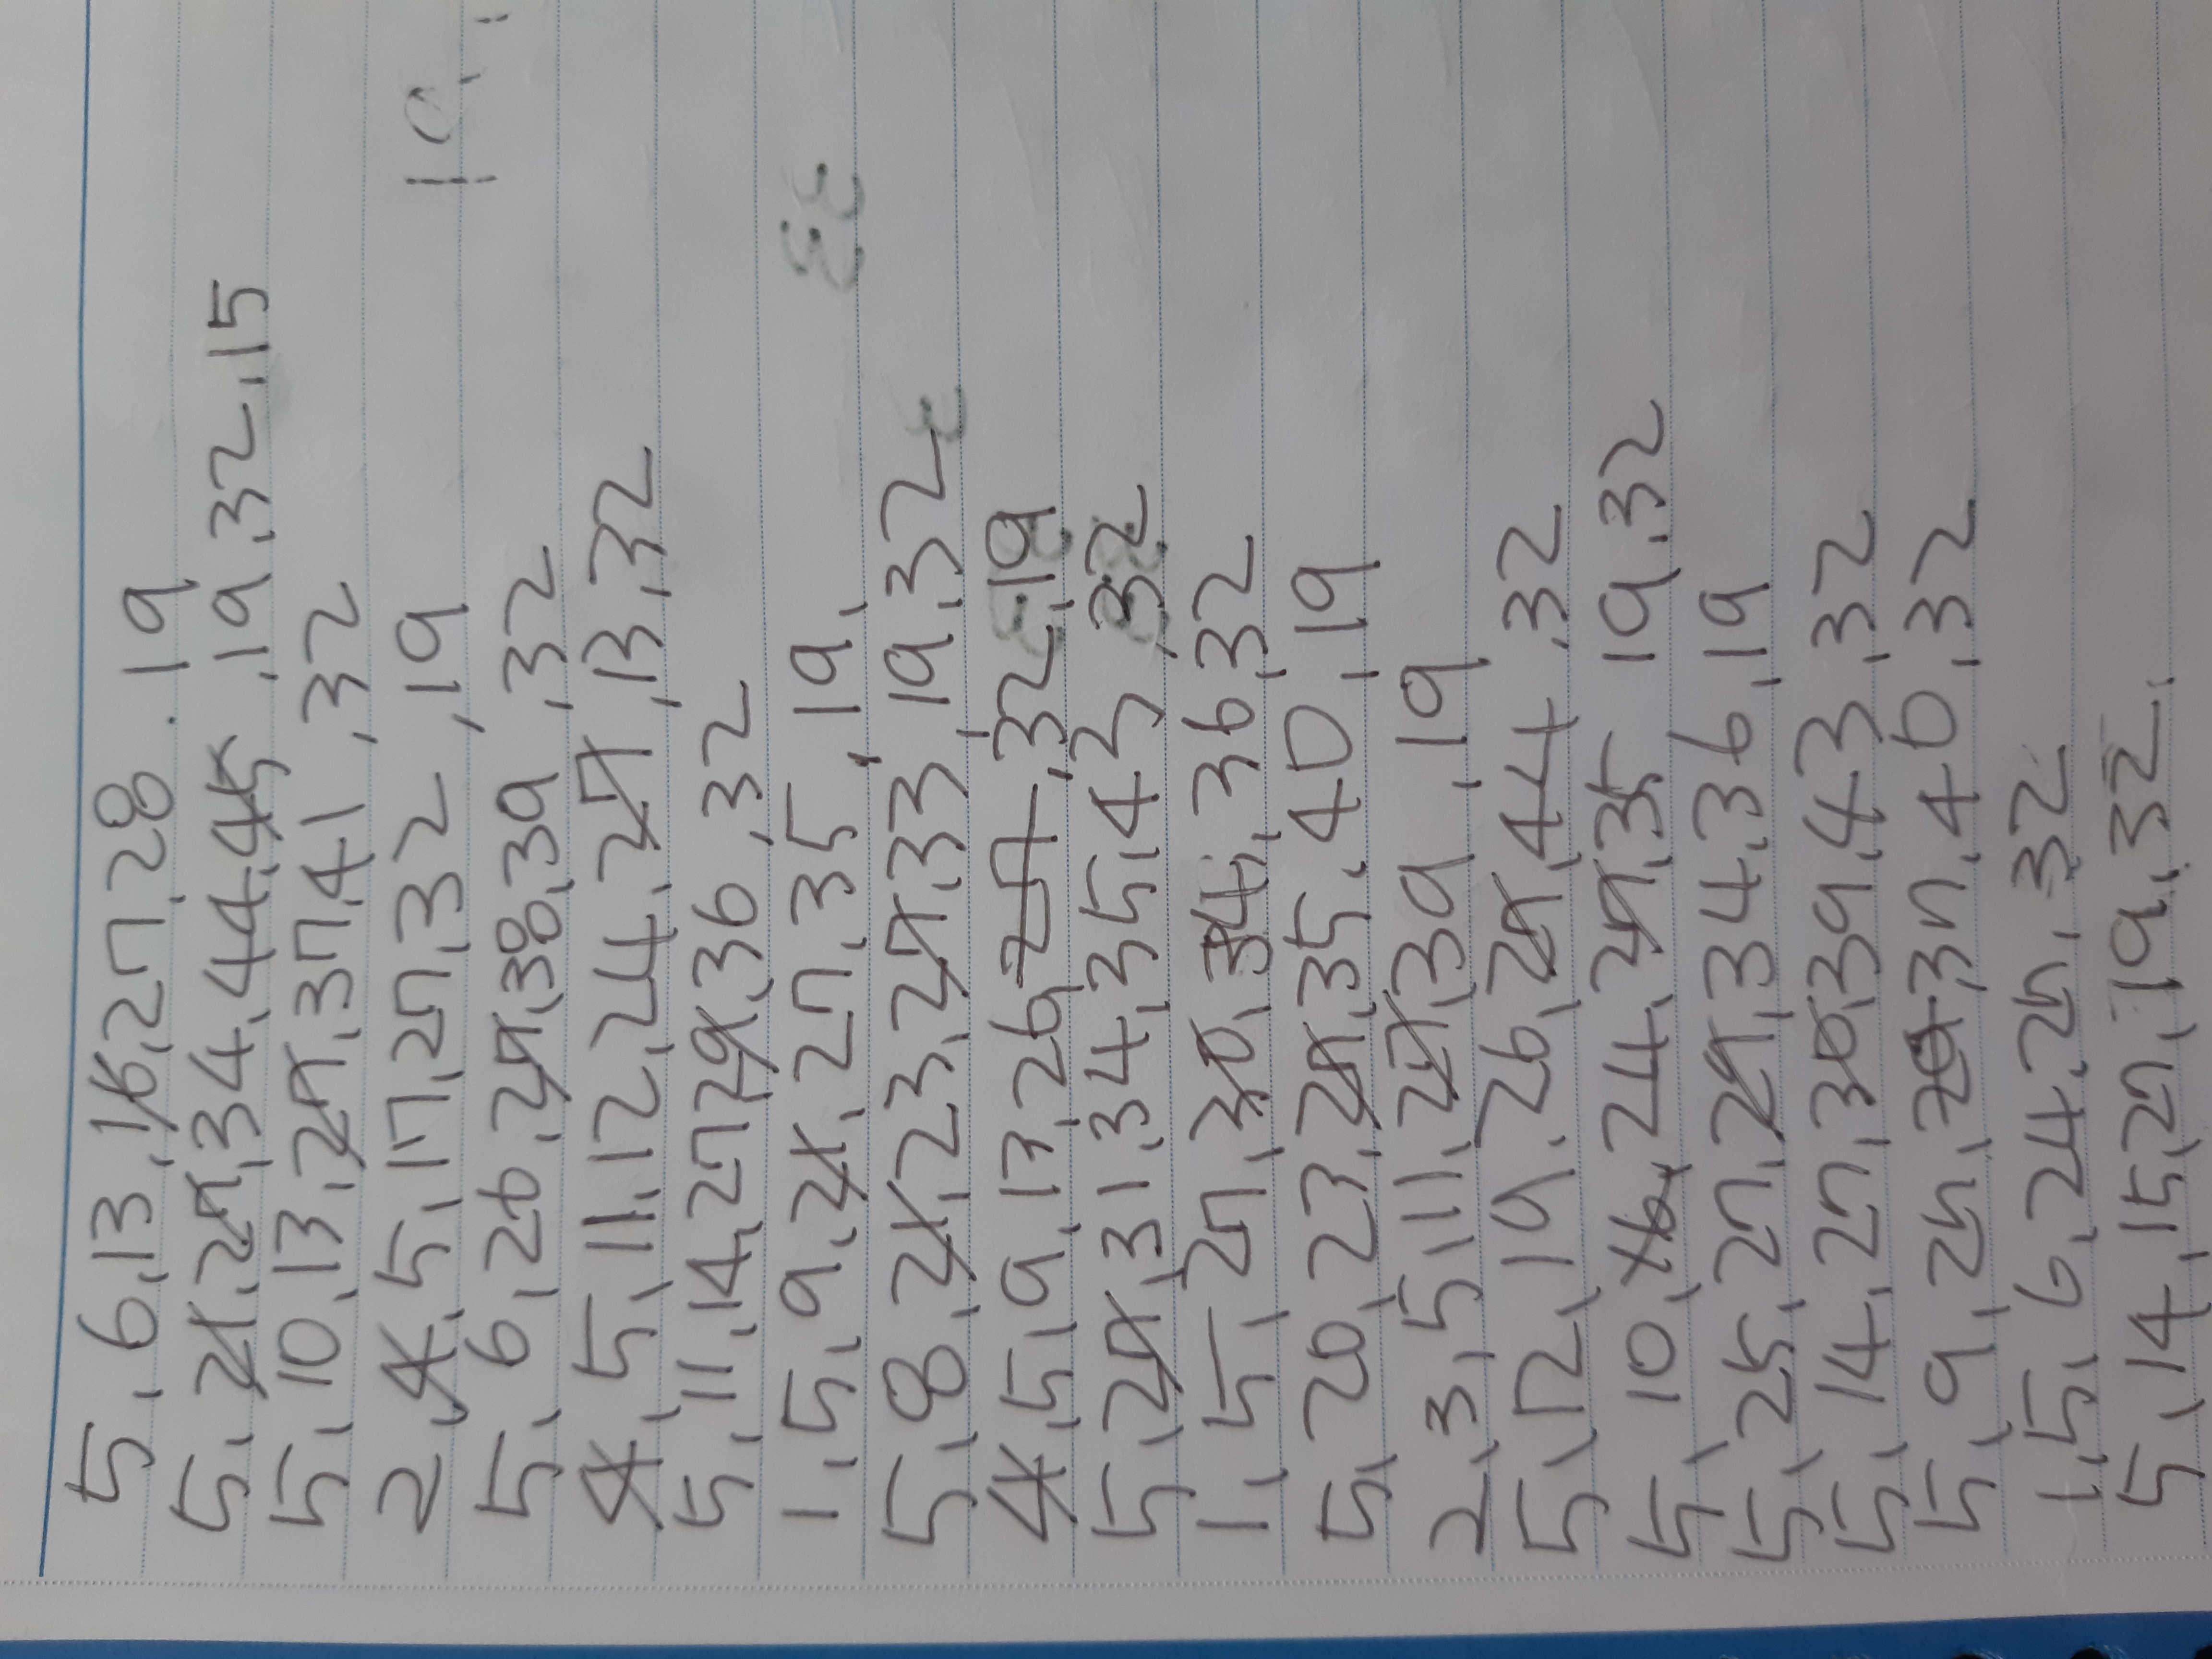 5, 6, 13, 16, 27, 28 . 19
5, 21, 27, 34, 44, 45, 19, 32, 15
5, 10, 13, 27, 37, 41, 32
2, 4, 5, 17, 27, 32, 19
5, 6, 26, 27, 38, 39, 32
4, 5, 11, 12, 24, 27, 13, 32
5, 11, 14, 27, 29, 36, 32
1, 5, 9, 21, 27, 35, 19,
5, 8, 21, 23, 27, 33, 19, 32
4, 5, 9, 17, 26, 27, 32, 19
5, 27, 31, 34, 35, 43, 32
1, 5, 27, 30, 34, 36, 32
5, 20, 23, 27, 35, 40, 19
2, 3, 5, 11, 27, 39, 19
5, 12, 19, 26, 27, 44, 32
5, 10, 16, 24, 27, 35 19, 32
5, 25, 27, 29, 34, 36, 19
5, 14, 27, 30, 39, 43, 32
5, 9, 27, 29, 37, 40, 32
1, 5, 6, 24, 27, 32
5, 14, 15, 27, 19, 32